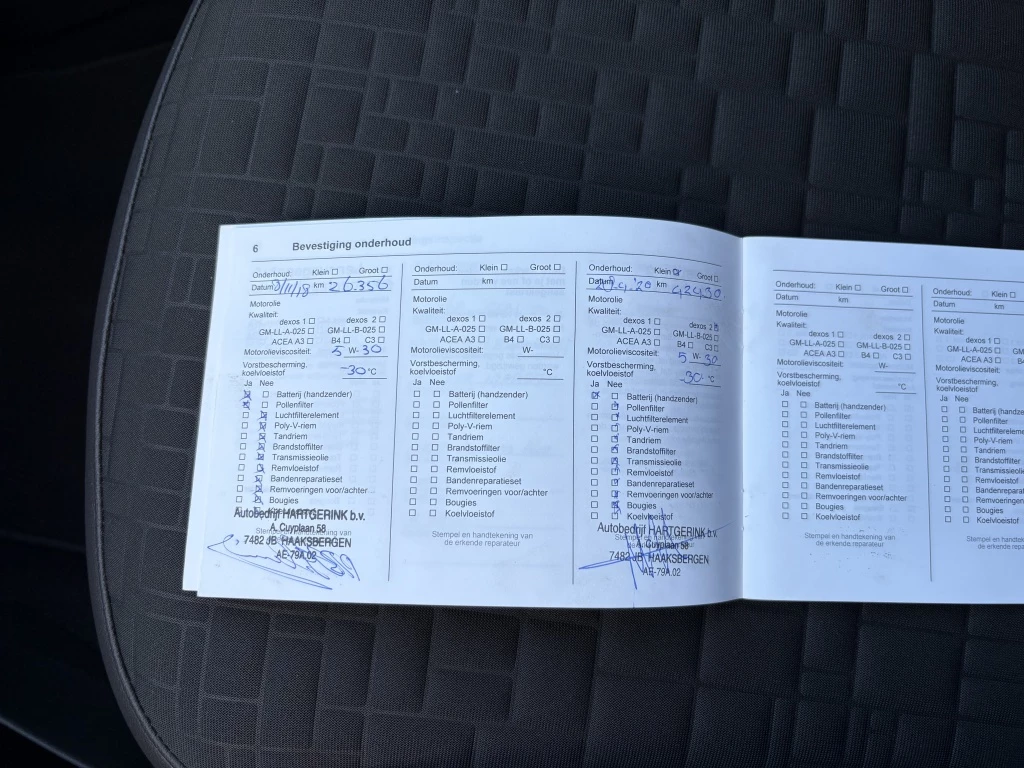 6 Bevestiging onderhoud
Onderhoud: Klein Groot
Datum 8/11/18 km 26.356
Motorolie
Kwaliteit:
dexos 1 dexos 2
GM-LL-A-025 GM-LL-B-025
ACEA A3 B4 C3
Motorolieviscositeit: 5 W- 30
Vorstbescherming,
koelvloeistof -30 °C
Ja Nee
Batterij (handzender)
Pollenfilter
Luchtfilterelement
Poly-V-riem
Tandriem
Brandstoffilter
Transmissieolie
Remvloeistof
Bandenreparatieset
Remvoeringen voor/achter
Bougies
Autobedrijf HARTGERINK b.v.
A. Cuyplaan 58
7482 JB HAAKSBERGEN
AE-79A.02
Onderhoud: Klein Groot
Datum km
Motorolie
Kwaliteit:
dexos 1 dexos 2
GM-LL-A-025 GM-LL-B-025
ACEA A3 B4 C3
Motorolieviscositeit: W-
Vorstbescherming,
koelvloeistof °C
Ja Nee
Batterij (handzender)
Pollenfilter
Luchtfilterelement
Poly-V-riem
Tandriem
Brandstoffilter
Transmissieolie
Remvloeistof
Bandenreparatieset
Remvoeringen voor/achter
Bougies
Koelvloeistof
Stempel en handtekening van
de erkende reparateur
Onderhoud: Klein Groot
Datum km 42430
Motorolie
Kwaliteit:
dexos 1 dexos 2
GM-LL-A-025 GM-LL-B-025
ACEA A3 B4 C3
Motorolieviscositeit: 5 W- 30
Vorstbescherming,
koelvloeistof -30 °C
Ja Nee
Batterij (handzender)
Pollenfilter
Luchtfilterelement
Poly-V-riem
Tandriem
Brandstoffilter
Transmissieolie
Remvloeistof
Bandenreparatieset
Remvoeringen voor/achter
Bougies
Koelvloeistof
Autobedrijf HARTGERINK b.v.
A. Cuyplaan 58
7482 JB HAAKSBERGEN
AE-79A.02
Onderhoud: Klein Groot
Datum km
Motorolie
Kwaliteit:
dexos 1 dexos 2
GM-LL-A-025 GM-LL-B-025
ACEA A3 B4 C3
Motorolieviscositeit: W-
Vorstbescherming,
koelvloeistof °C
Ja Nee
Batterij (handzender)
Pollenfilter
Luchtfilterelement
Poly-V-riem
Tandriem
Brandstoffilter
Transmissieolie
Remvloeistof
Bandenreparatieset
Remvoeringen voor/achter
Bougies
Koelvloeistof
Stempel en handtekening van
de erkende reparateur
Onderhoud: Klein
Datum km
Motorolie
Kwaliteit:
dexos 1
GM-LL-A-025
ACEA A3
Motorolieviscositeit:
Vorstbescherming,
koelvloeistof
Ja Nee
Batterij (handzender)
Pollenfilter
Luchtfilterelement
Poly-V-riem
Tandriem
Brandstoffilter
Transmissieolie
Remvloeistof
Bandenreparatieset
Remvoeringen
Bougies
Koelvloeistof
Stempel en
de erkende